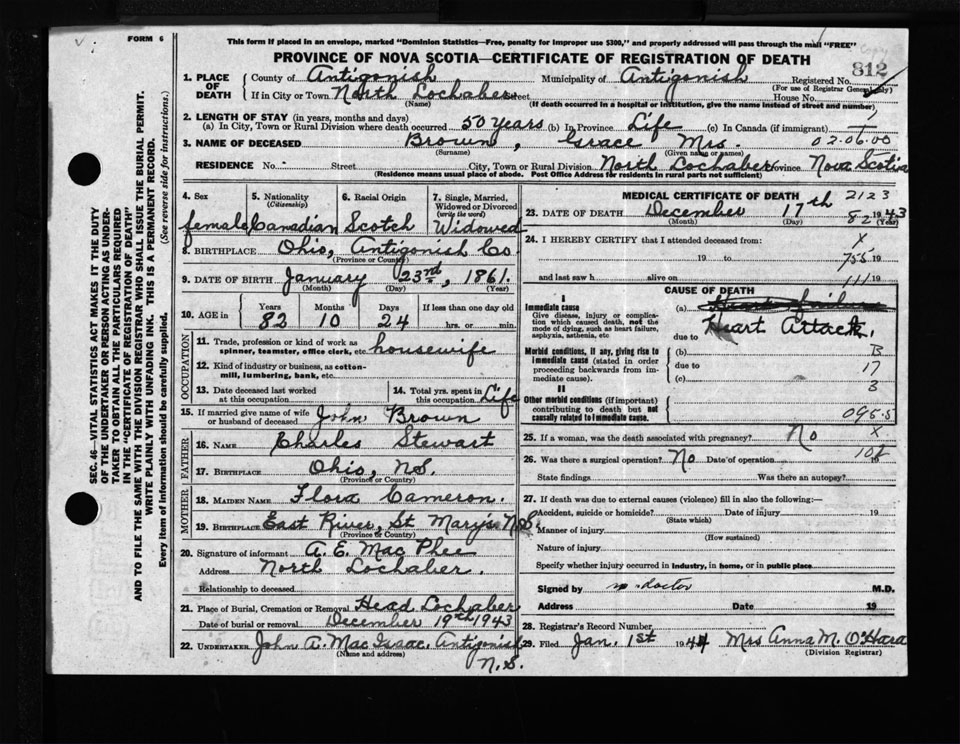 FORM 6
This form if placed in an envelope, marked "Dominion Statistics—Free, penalty for improper use $300," and properly addressed will pass through the mail "FREE"
Copy
PROVINCE OF NOVA SCOTIA—CERTIFICATE OF REGISTRATION OF DEATH
812
1. PLACE OF DEATH County of Antigonish Municipality of Antigonish Registered No.
(For use of Registrar General only)
If in City or Town North Lochaber Street House No.
(Name) (If death occurred in a hospital or institution, give the name instead of street and number)
2. LENGTH OF STAY (in years, months and days)
(a) In City, Town or Rural Division where death occurred 50 years (b) In Province Life (c) In Canada (if immigrant)
3. NAME OF DECEASED Brown, Grace Mrs. 02.06.00
(Surname) (Given name or names)
RESIDENCE No. Street City, Town or Rural Division North Lochaber Province Nova Scotia
(Residence means usual place of abode. Post Office Address for residents in rural parts not sufficient)
4. Sex 5. Nationality (Citizenship) 6. Racial Origin 7. Single, Married, Widowed or Divorced (write the word)
female Canadian Scotch Widowed
8. BIRTHPLACE Ohio, Antigonish Co
(Province or County)
9. DATE OF BIRTH January 23rd, 1861.
(Month) (Day) (Year)
10. AGE in Years Months Days If less than one day old
82 10 24 hrs. or min.
OCCUPATION
11. Trade, profession or kind of work as spinner, teamster, office clerk, etc. housewife
12. Kind of industry or business, as cotton-mill, lumbering, bank, etc.
13. Date deceased last worked at this occupation 14. Total yrs. spent in this occupation Life
15. If married give name of wife or husband of deceased John Brown
FATHER
16. NAME Charles Stewart
17. BIRTHPLACE Ohio, N.S.
(Province or County)
MOTHER
18. MAIDEN NAME Flora Cameron.
19. BIRTHPLACE East River, St Mary's N.S.
(Province or County)
20. Signature of informant A. E. Mac Phee
Address North Lochaber.
Relationship to deceased
21. Place of Burial, Cremation or Removal Head Lochaber
Date of burial or removal December 19th 1943
22. UNDERTAKER John A. Mac Isaac. Antigonish N.S.
(Name and address)
MEDICAL CERTIFICATE OF DEATH 2123
23. DATE OF DEATH December 17th 82 1943
(Month) (Day) (Year)
24. I HEREBY CERTIFY that I attended deceased from: X
19 to 19
and last saw h alive on 19
CAUSE OF DEATH
I
Immediate cause (a) Heart failure
Give disease, injury or complication which caused death, not the mode of dying, such as heart failure, asphyxia, asthenia, etc Heart Attack,
due to
Morbid conditions, if any, giving rise to immediate cause (stated in order proceeding backwards from immediate cause). (b) B
due to 17
(c) 3
II
Other morbid conditions (if important) contributing to death but not causally related to immediate cause. 095.5
25. If a woman, was the death associated with pregnancy? No X
26. Was there a surgical operation? No Date of operation 19
State findings Was there an autopsy?
27. If death was due to external causes (violence) fill in also the following:—
Accident, suicide or homicide? Date of injury 19
(State which)
Manner of injury
(How sustained)
Nature of injury
Specify whether injury occurred in industry, in home, or in public place
Signed by no doctor M.D.
Address Date 19
28. Registrar's Record Number
29. Filed Jan. 1st 1944 Mrs Anna M. O'Hara
(Division Registrar)
SEC. 46—VITAL STATISTICS ACT MAKES IT THE DUTY
OF THE UNDERTAKER OR PERSON ACTING AS UNDER-
TAKER TO OBTAIN ALL THE PARTICULARS REQUIRED
IN THE "CERTIFICATE OF REGISTRATION OF DEATH"
AND TO FILE THE SAME WITH THE DIVISION REGISTRAR WHO SHALL ISSUE THE BURIAL PERMIT.
WRITE PLAINLY WITH UNFADING INK. THIS IS A PERMANENT RECORD.
Every item of information should be carefully supplied. (See reverse side for instructions.)